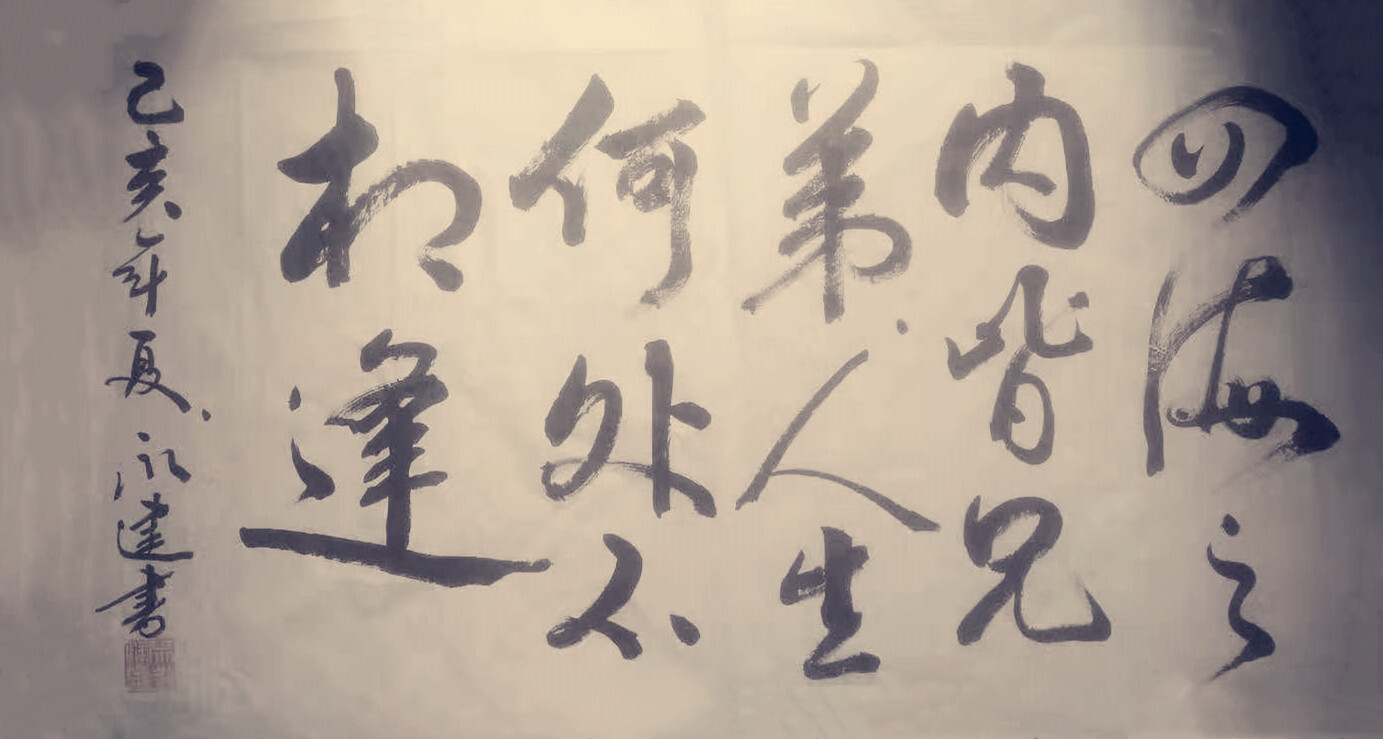 四海之
内皆兄
弟人生
何处不
相逢
己亥年夏永建书